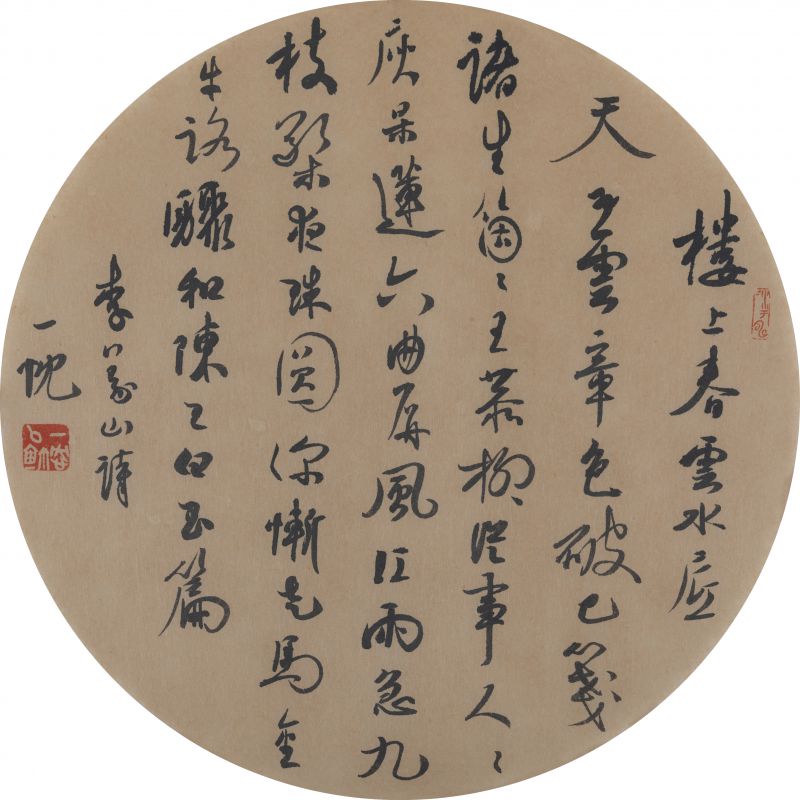 樓上春雲水底
天五雲章色破巴箋
諸生箇々王恭柳從事人々
庾杲蓮六曲屏風江雨急九
枝檠夜珠圓深慚走馬金
牛路驟和陳王白玉篇
李義山詩
一